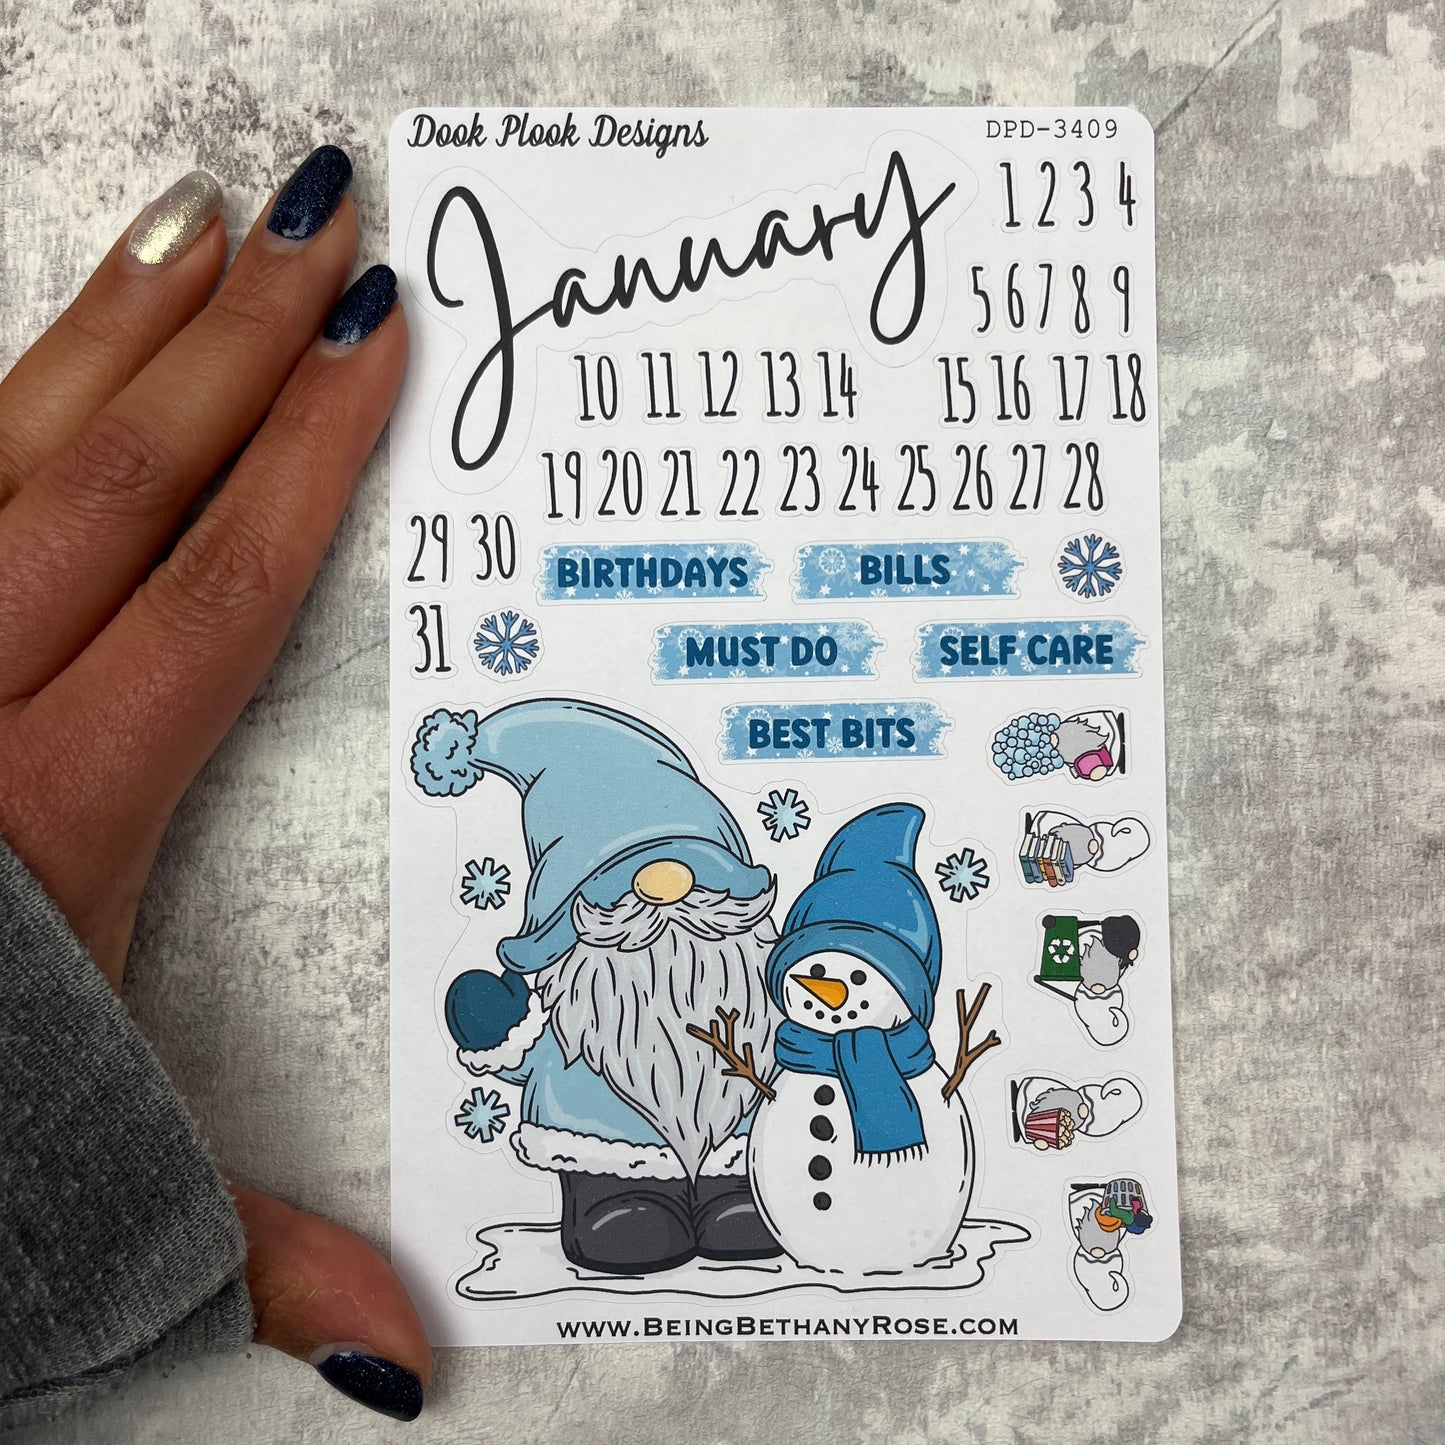 Dook Plook Designs
DPD-3409
January
1 2 3 4
5 6 7 8 9
10 11 12 13 14 15 16 17 18
19 20 21 22 23 24 25 26 27 28
29 30
BIRTHDAYS
BILLS
31
MUST DO
SELF CARE
BEST BITS
www.BeingBethanyRose.com